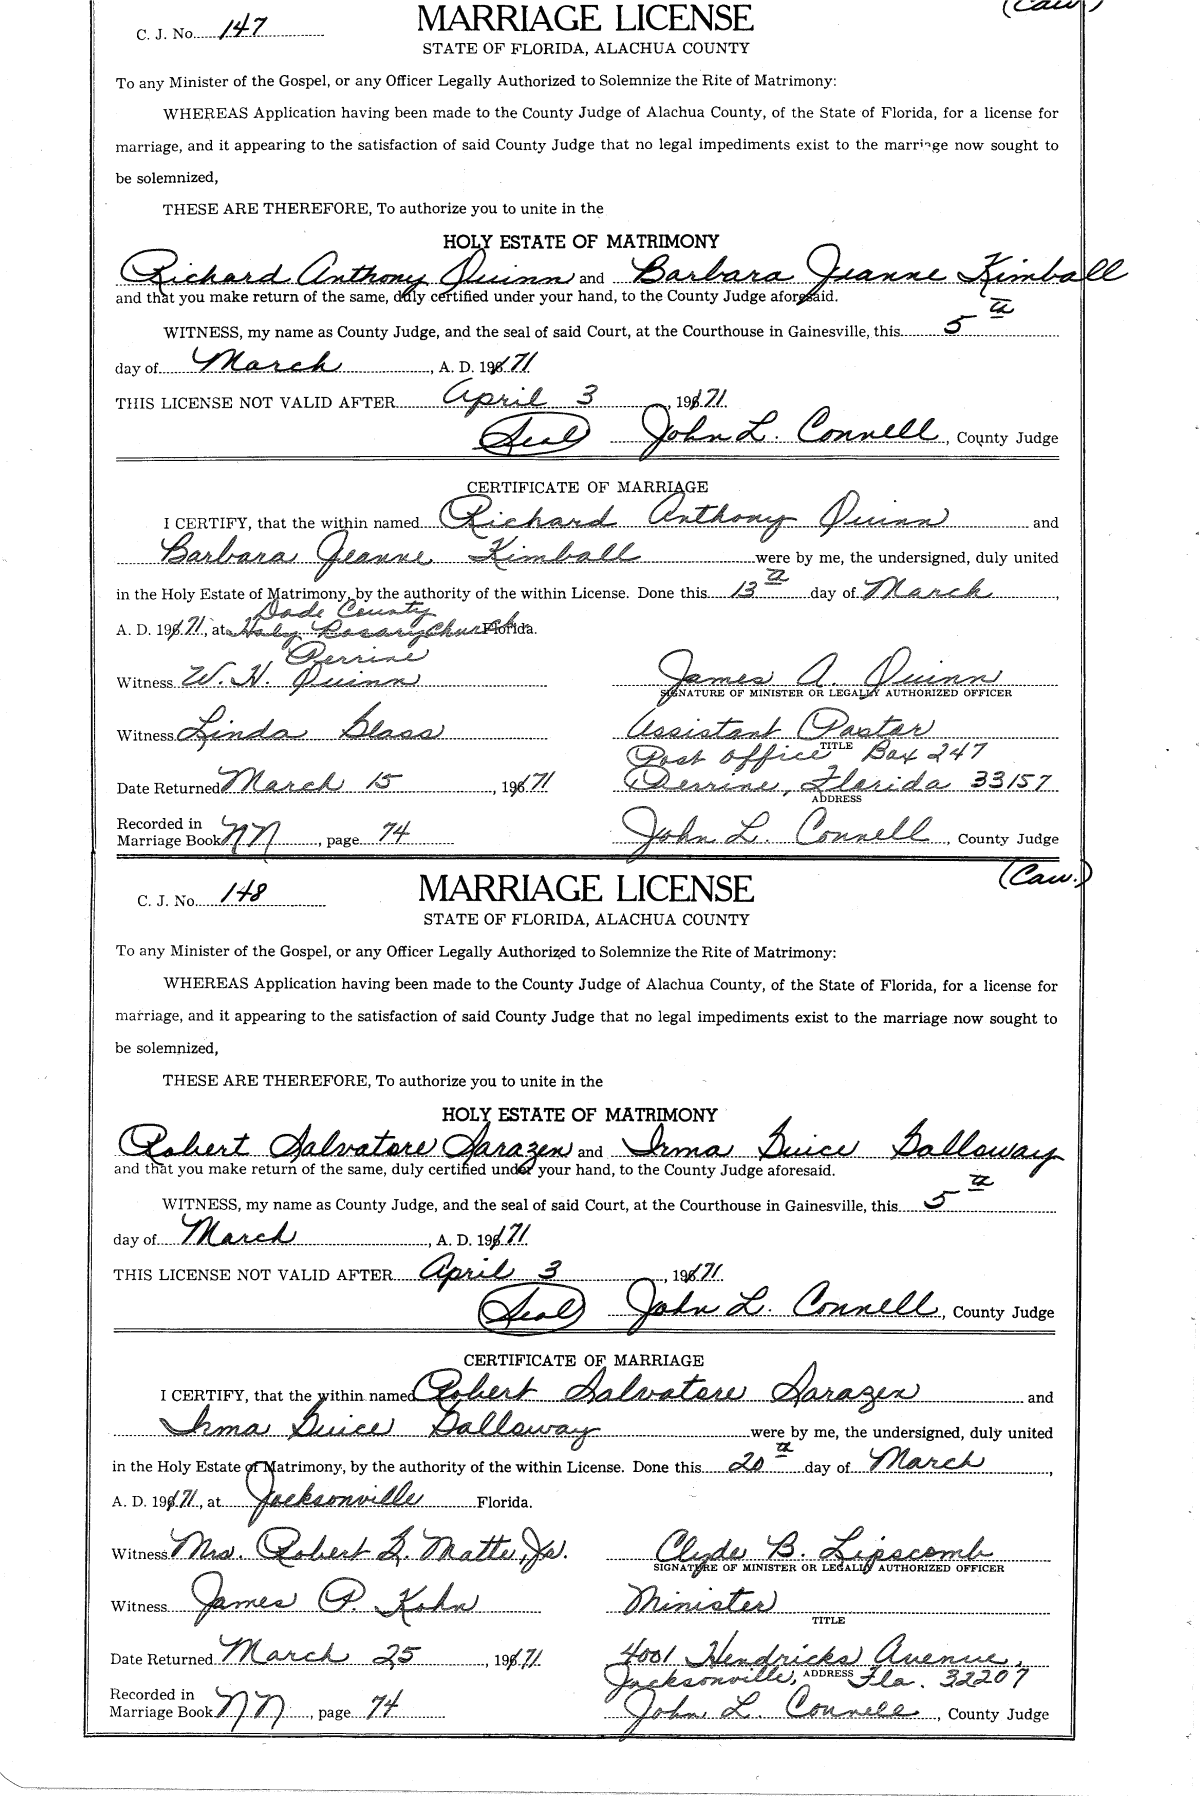 (Caw.)
C. J. No. 147
MARRIAGE LICENSE
STATE OF FLORIDA, ALACHUA COUNTY
To any Minister of the Gospel, or any Officer Legally Authorized to Solemnize the Rite of Matrimony:
WHEREAS Application having been made to the County Judge of Alachua County, of the State of Florida, for a license for
marriage, and it appearing to the satisfaction of said County Judge that no legal impediments exist to the marriage now sought to
be solemnized,
THESE ARE THEREFORE, To authorize you to unite in the
HOLY ESTATE OF MATRIMONY
Richard Anthony Quinn and Barbara Jeanne Kimball
and that you make return of the same, duly certified under your hand, to the County Judge aforesaid.
WITNESS, my name as County Judge, and the seal of said Court, at the Courthouse in Gainesville, this 5th
day of March, A. D. 1971
THIS LICENSE NOT VALID AFTER April 3, 1971.
(Seal) John L. Connell, County Judge
CERTIFICATE OF MARRIAGE
I CERTIFY, that the within named Richard Anthony Quinn and
Barbara Jeanne Kimball were by me, the undersigned, duly united
in the Holy Estate of Matrimony, by the authority of the within License. Done this 13th day of March,
Dade County
A. D. 1971, at Holy Rosary Church Florida.
Perrine
Witness W. H. Quinn James A. Quinn
SIGNATURE OF MINISTER OR LEGALLY AUTHORIZED OFFICER
Witness Linda Glass Assistant Pastor
TITLE
Post Office Box 247
Date Returned March 15, 1971 Perrine, Florida 33157
ADDRESS
Recorded in
Marriage Book NN, page 74 John L. Connell, County Judge
(Caw.)
C. J. No. 148
MARRIAGE LICENSE
STATE OF FLORIDA, ALACHUA COUNTY
To any Minister of the Gospel, or any Officer Legally Authorized to Solemnize the Rite of Matrimony:
WHEREAS Application having been made to the County Judge of Alachua County, of the State of Florida, for a license for
marriage, and it appearing to the satisfaction of said County Judge that no legal impediments exist to the marriage now sought to
be solemnized,
THESE ARE THEREFORE, To authorize you to unite in the
HOLY ESTATE OF MATRIMONY
Robert Salvatore Sarazen and Irma Guice Galloway
and that you make return of the same, duly certified under your hand, to the County Judge aforesaid.
WITNESS, my name as County Judge, and the seal of said Court, at the Courthouse in Gainesville, this 5th
day of March, A. D. 1971.
THIS LICENSE NOT VALID AFTER April 3, 1971.
(Seal) John L. Connell, County Judge
CERTIFICATE OF MARRIAGE
I CERTIFY, that the within named Robert Salvatore Sarazen and
Irma Guice Galloway were by me, the undersigned, duly united
in the Holy Estate of Matrimony, by the authority of the within License. Done this 20th day of March,
A. D. 1971, at Jacksonville Florida.
Witness Mrs. Robert L. Matte, Jr. Clyde B. Lipscomb
SIGNATURE OF MINISTER OR LEGALLY AUTHORIZED OFFICER
Witness James P. Kohn Minister
TITLE
Date Returned March 25, 1971 4001 Hendricks Avenue,
Jacksonville, ADDRESS Fla. 32207
Recorded in
Marriage Book NN, page 74 John L. Connell, County Judge